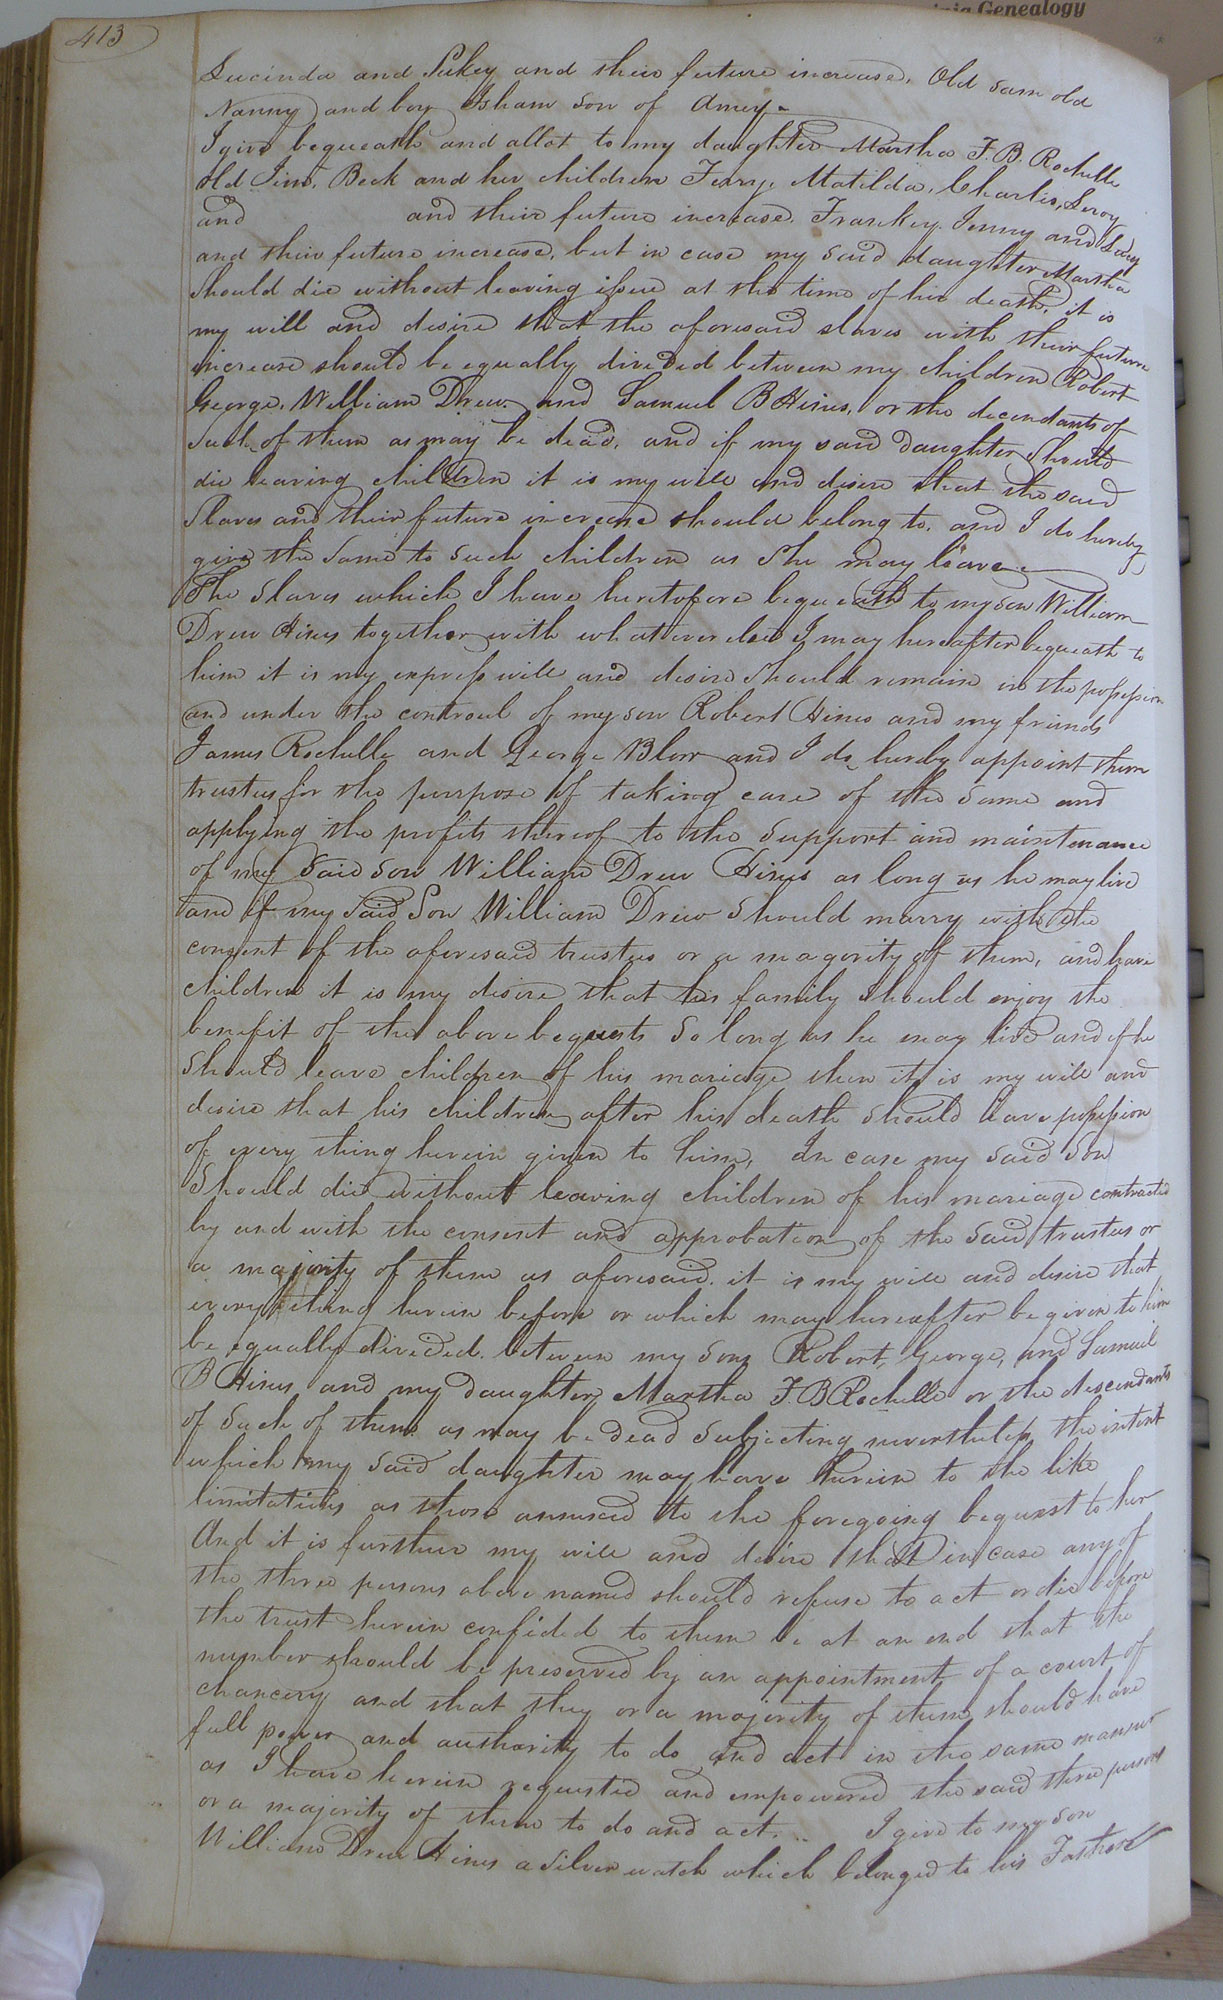 Genealogy
413
Lucinda and Sukey and their future increase. Old Sam old
Nanny and boy Isham son of Amey.
I give bequeath and allot to my daughter Martha F. B. Rochelle
old Jim, Beck and her children Ferry, Matilda, Charles, Leroy
and and their future increase. Frankey. Jenny and Lucy
and their future increase, but in case my said daughter Martha
should die without leaving issue at the time of her death, it is
my will and desire that the aforesaid slaves with their future
increase should be equally divided between my children Robert
George, William Drew. and Samuel B Hines, or the decendants of
such of them as may be dead. and if my said daughter should
die leaving children it is my will and desire that the said
Slaves and their future increase should belong to. and I do hereby
give the same to such children as she may leave.
The slaves which I have heretofore bequeath to my son William
Drew Hines together with whatever else I may hereafter bequeath to
him it is my express will and desire should remain in the possession
and under the controul of my son Robert Hines and my friends
James Rochelle and George Blow and I do hereby appoint them
trustees for the purpose of taking care of the same and
applying the profits thereof to the support and maintenance
of my said son William Drew Hines as long as he may live
and if my said Son William Drew should marry with the
consent of the aforesaid trustees or a magority of them, and have
children it is my desire that his family should enjoy the
benefit of the above bequests so long as he may live and if he
should leave children of his mariage then it is my will and
desire that his children after his death should have possession
of every thing herein given to him, In case my said Son
should die without leaving children of his mariage contracted
by and with the consent and approbation of the said trustees or
a majority of them as aforesaid. it is my will and desire that
every thing herein before or which may hereafter be given to him
be equally divided between my sons Robert, George, and Samuel
B Hines and my daughter Martha F. B Rochelle or the descendants
of such of them as may be dead subjecting nevertheless the intent
which my said daughter may have therein to the like
limitations as those annexed to the foregoing bequest to her
And it is further my will and desire that in case any of
the three persons above named should refuse to act or die before
the trust herein confided to them be at an end that the
number should be preserved by an appointment of a court of
chancery and that they or a majority of them should have
full power and authority to do and act in the same manner
as I have herein requested and empowered the said three persons
or a majority of them to do and act. .. I give to my son
William Drew Hines a silver watch which belonged to his Father